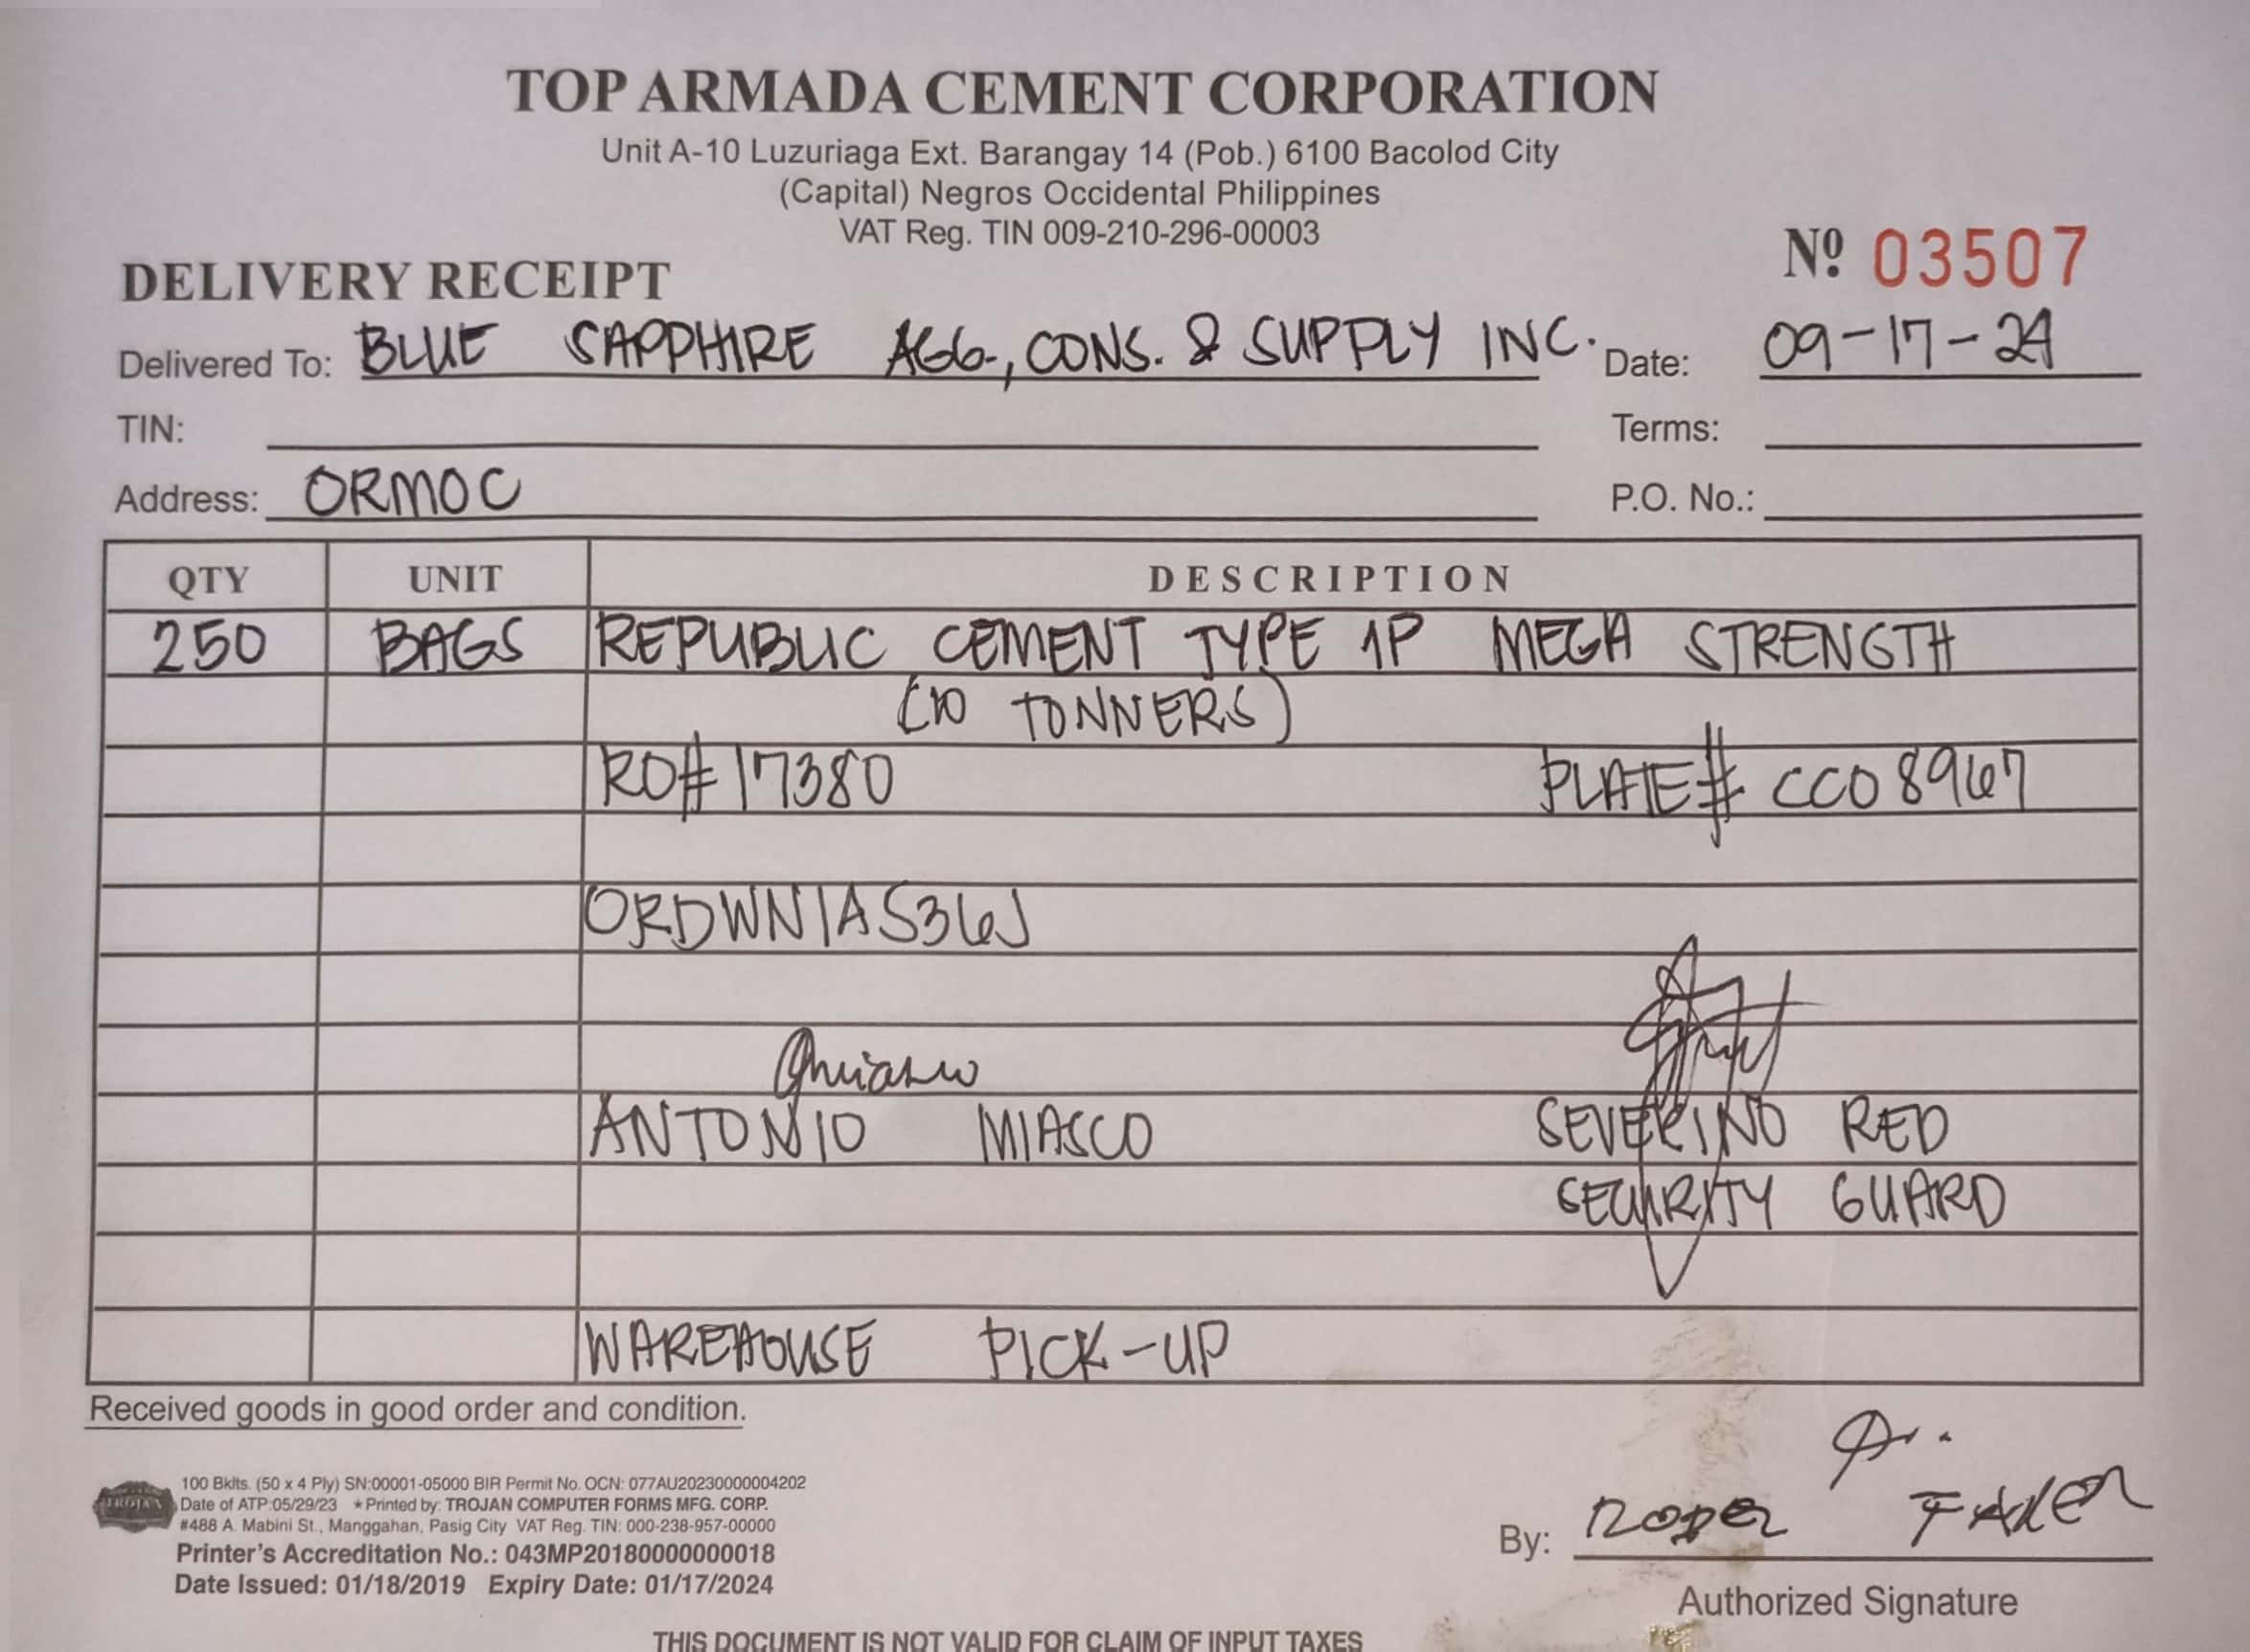 TOP ARMADA CEMENT CORPORATION
Unit A-10 Luzuriaga Ext. Barangay 14 (Pob.) 6100 Bacolod City
(Capital) Negros Occidental Philippines
VAT Reg. TIN 009-210-296-00003
Nº 03507
DELIVERY RECEIPT
Delivered To: BLUE SAPPHIRE AGG., CONS. & SUPPLY INC. Date: 09-17-24
TIN: Terms:
Address: ORMOC P.O. No.:
QTY UNIT DESCRIPTION
250 BAGS REPUBLIC CEMENT TYPE 1P MEGA STRENGTH
(10 TONNERS)
RO# 17380 PLATE# CCO 8967
ORDWN1AS36J
ANTONIO MIASCO SEVERINO RED
SECURITY GUARD
WAREHOUSE PICK-UP
Received goods in good order and condition.
TROJAN
100 Bklts. (50 x 4 Ply) SN:00001-05000 BIR Permit No. OCN: 077AU20230000004202
Date of ATP:05/29/23 ★Printed by: TROJAN COMPUTER FORMS MFG. CORP.
#488 A. Mabini St., Manggahan, Pasig City VAT Reg. TIN: 000-238-957-00000
Printer's Accreditation No.: 043MP20180000000018
Date Issued: 01/18/2019 Expiry Date: 01/17/2024
By:
Authorized Signature
THIS DOCUMENT IS NOT VALID FOR CLAIM OF INPUT TAXES